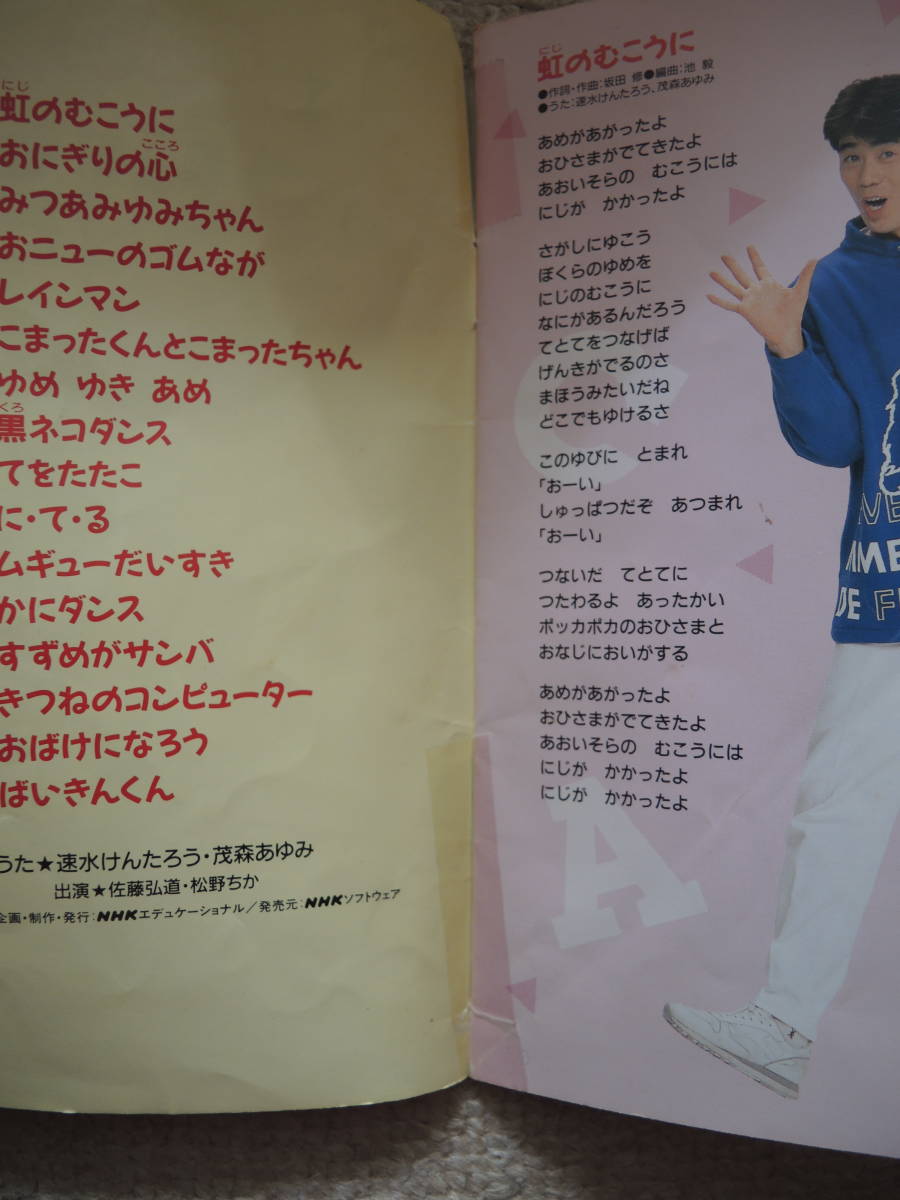 にじ
虹のむこうに
こころ
おにぎりの心
みつあみゆみちゃん
おニューのゴムなが
レインマン
こまったくんとこまったちゃん
ゆめ ゆき あめ
くろ
黒ネコダンス
てをたたこ
に・て・る
ムギューだいすき
かにダンス
すずめがサンバ
きつねのコンピューター
おばけになろう
ばいきんくん
うた★速水けんたろう・茂森あゆみ
出演★佐藤弘道・松野ちか
企画・制作・発行：NHKエデュケーショナル／発売元：NHKソフトウェア
にじ
虹のむこうに
●作詞・作曲：坂田 修●編曲：池 毅
●うた：速水けんたろう、茂森あゆみ
あめがあがったよ
おひさまがでてきたよ
あおいそらの むこうには
にじが かかったよ
さがしにゆこう
ぼくらのゆめを
にじのむこうに
なにがあるんだろう
てとてをつなげば
げんきがでるのさ
まほうみたいだね
どこでもゆけるさ
このゆびに とまれ
「おーい」
しゅっぱつだぞ あつまれ
「おーい」
つないだ てとてに
つたわるよ あったかい
ポッカポカのおひさまと
おなじにおいがする
あめがあがったよ
おひさまがでてきたよ
あおいそらの むこうには
にじが かかったよ
にじが かかったよ
C
A